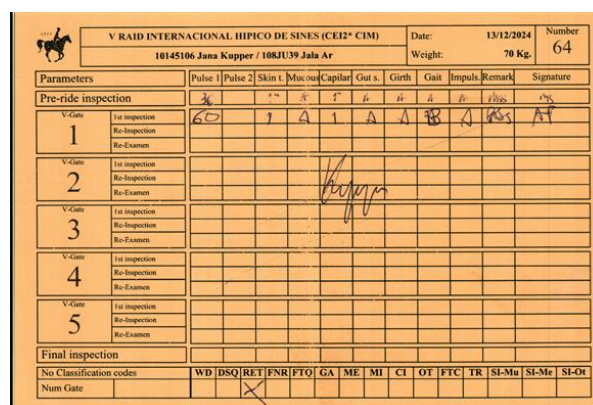 V RAID INTERNACIONAL HIPICO DE SINES (CEI2* CIM) Date: 13/12/2024 Number
10145106 Jana Kupper / 108JU39 Jala Ar Weight: 70 Kg. 64
Parameters Pulse 1 Pulse 2 Skin t. Mucous Capilar Gut s. Girth Gait Impuls. Remark Signature
Pre-ride inspection 36 A A A A A
V-Gate 1 1st inspection 60 1 A 1 A A B A
Re-Inspection
Re-Examen
V-Gate 2 1st inspection
Re-Inspection
Re-Examen
V-Gate 3 1st inspection
Re-Inspection
Re-Examen
V-Gate 4 1st inspection
Re-Inspection
Re-Examen
V-Gate 5 1st inspection
Re-Inspection
Re-Examen
Final inspection
No Classification codes WD DSQ RET FNR FTQ GA ME MI CI OT FTC TR SI-Mu SI-Me SI-Ot
Num Gate X